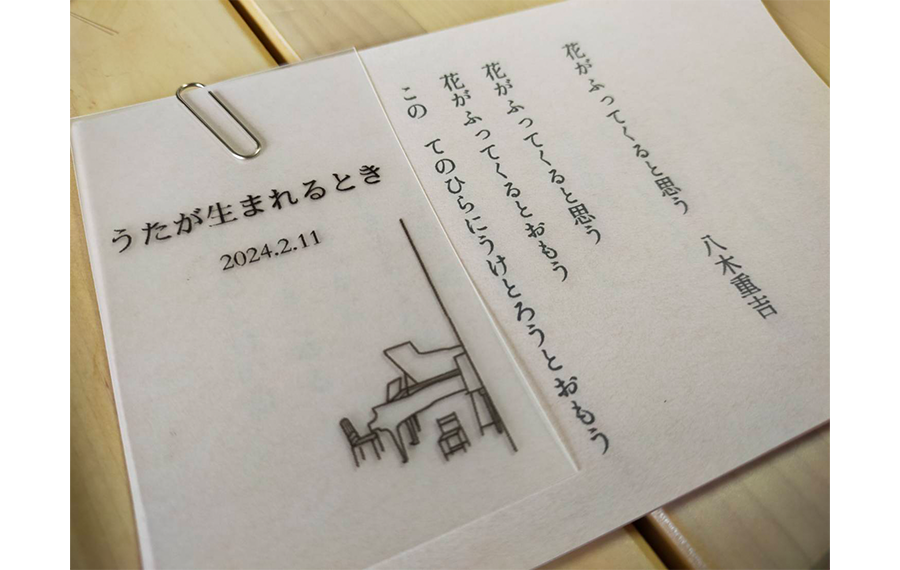 うたが生まれるとき
2024.2.11
花がふってくると思う
八木重吉
花がふってくると思う
花がふってくるとおもう
この てのひらにうけとろうとおもう